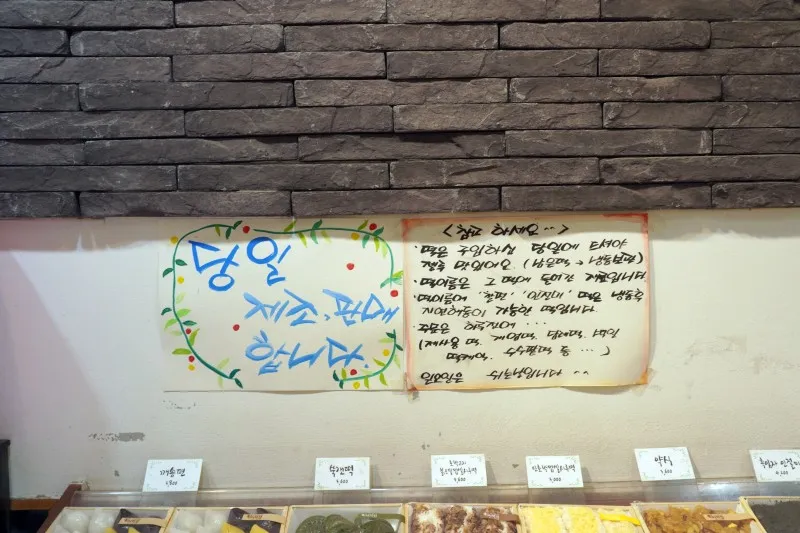 당일
제조·판매
합니다.
<참고 하세요..>
·떡은 구입하신 당일에 드셔야
제일 맛있어요. (남은떡→냉동보관)
·떡이름은 그 떡에 들어간 재료입니다
·떡이름에 "찰편" "인절미" 떡은 냉동후
자연해동이 가능한 떡입니다.
·주문은 하루전에 ...
(제사용 떡. 떡. 답례떡. 백일
떡케익. 수수팥떡 등 ...)
일요일은 쉬는날입니다 ^^
개송편
쑥갠떡
약식